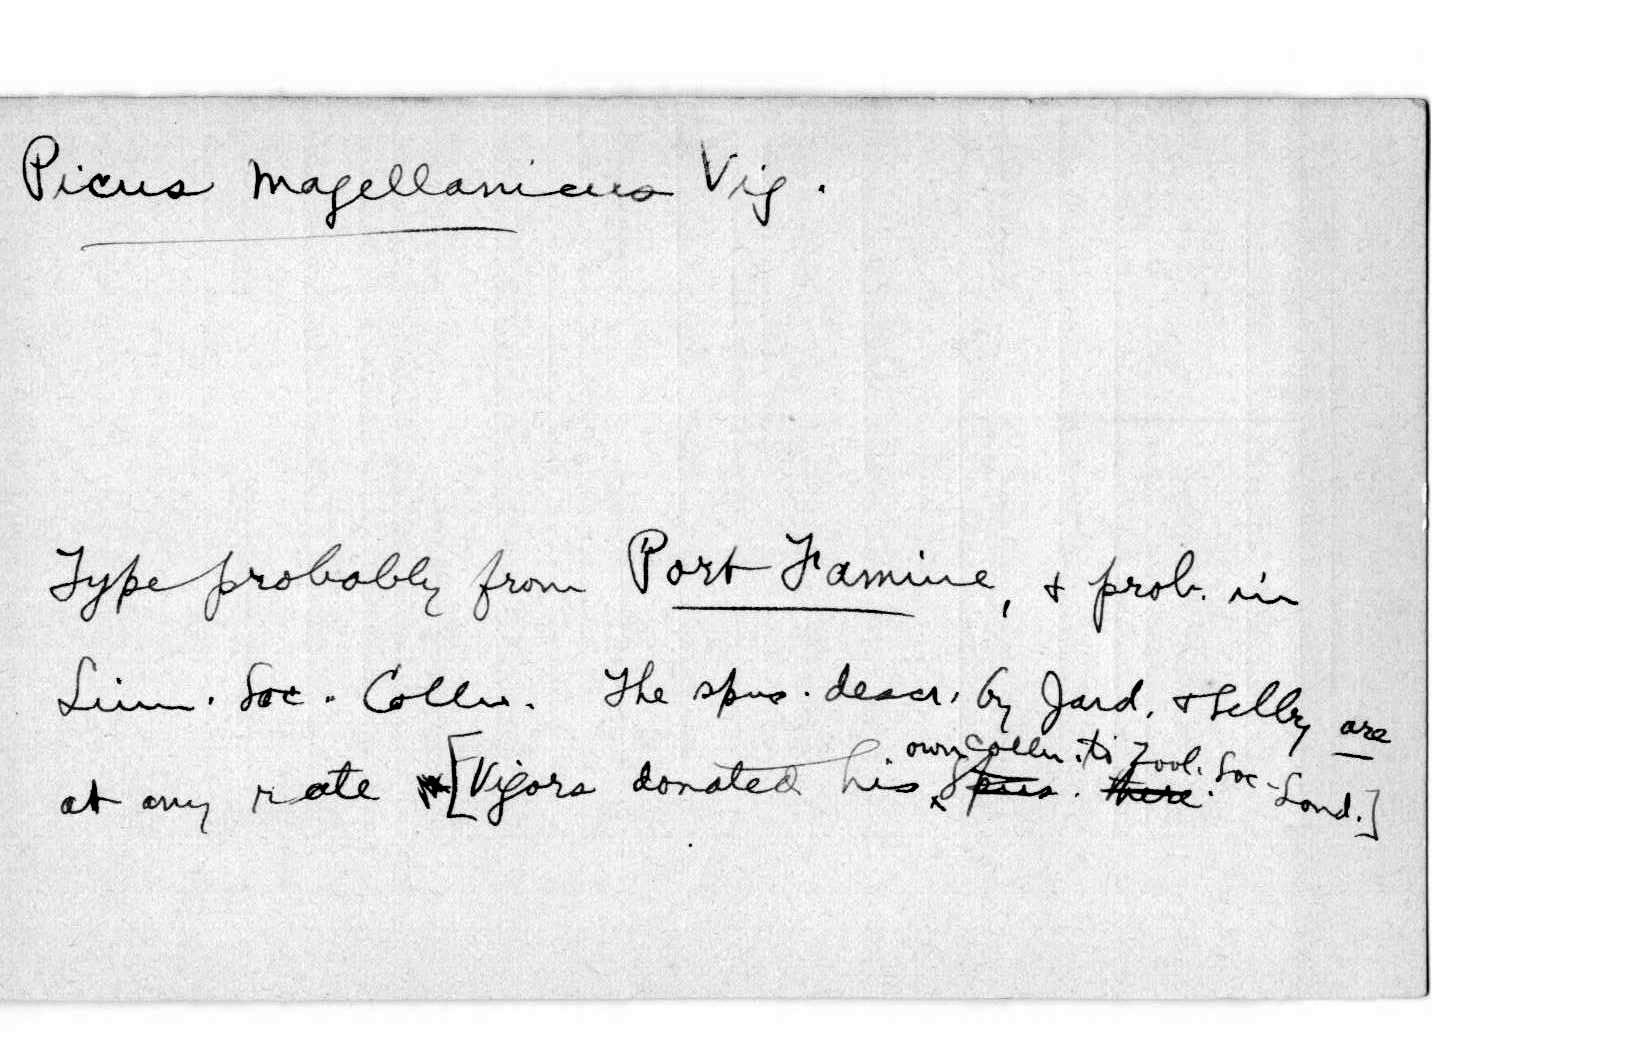 Picus magellanicus Vig.
Type probably from Port Famine, & prob. in
Linn. Soc. Colln. The spns. descr. by Jard. & Selby are
at any rate [Vigors donated his own Colln. to Zool. Soc. Lond.]